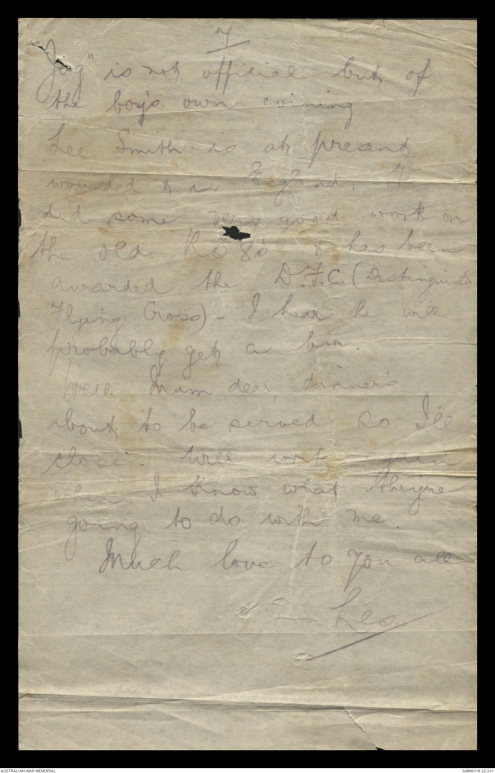 7
"Jag" is not official but of
the boy's own coining
Lee Smith is at present
wounded & in England. He
did some very good work on
the old & has been
awarded the D.F.C (Distinguished
Flying Cross) - I hear he will
probably get a bar.
Well Mum dear, dinner's
about to be served so I'll
close. Will write again
when I know what they're
going to do with me.
Much love to you all
Les
AUSTRALIAN WAR MEMORIAL